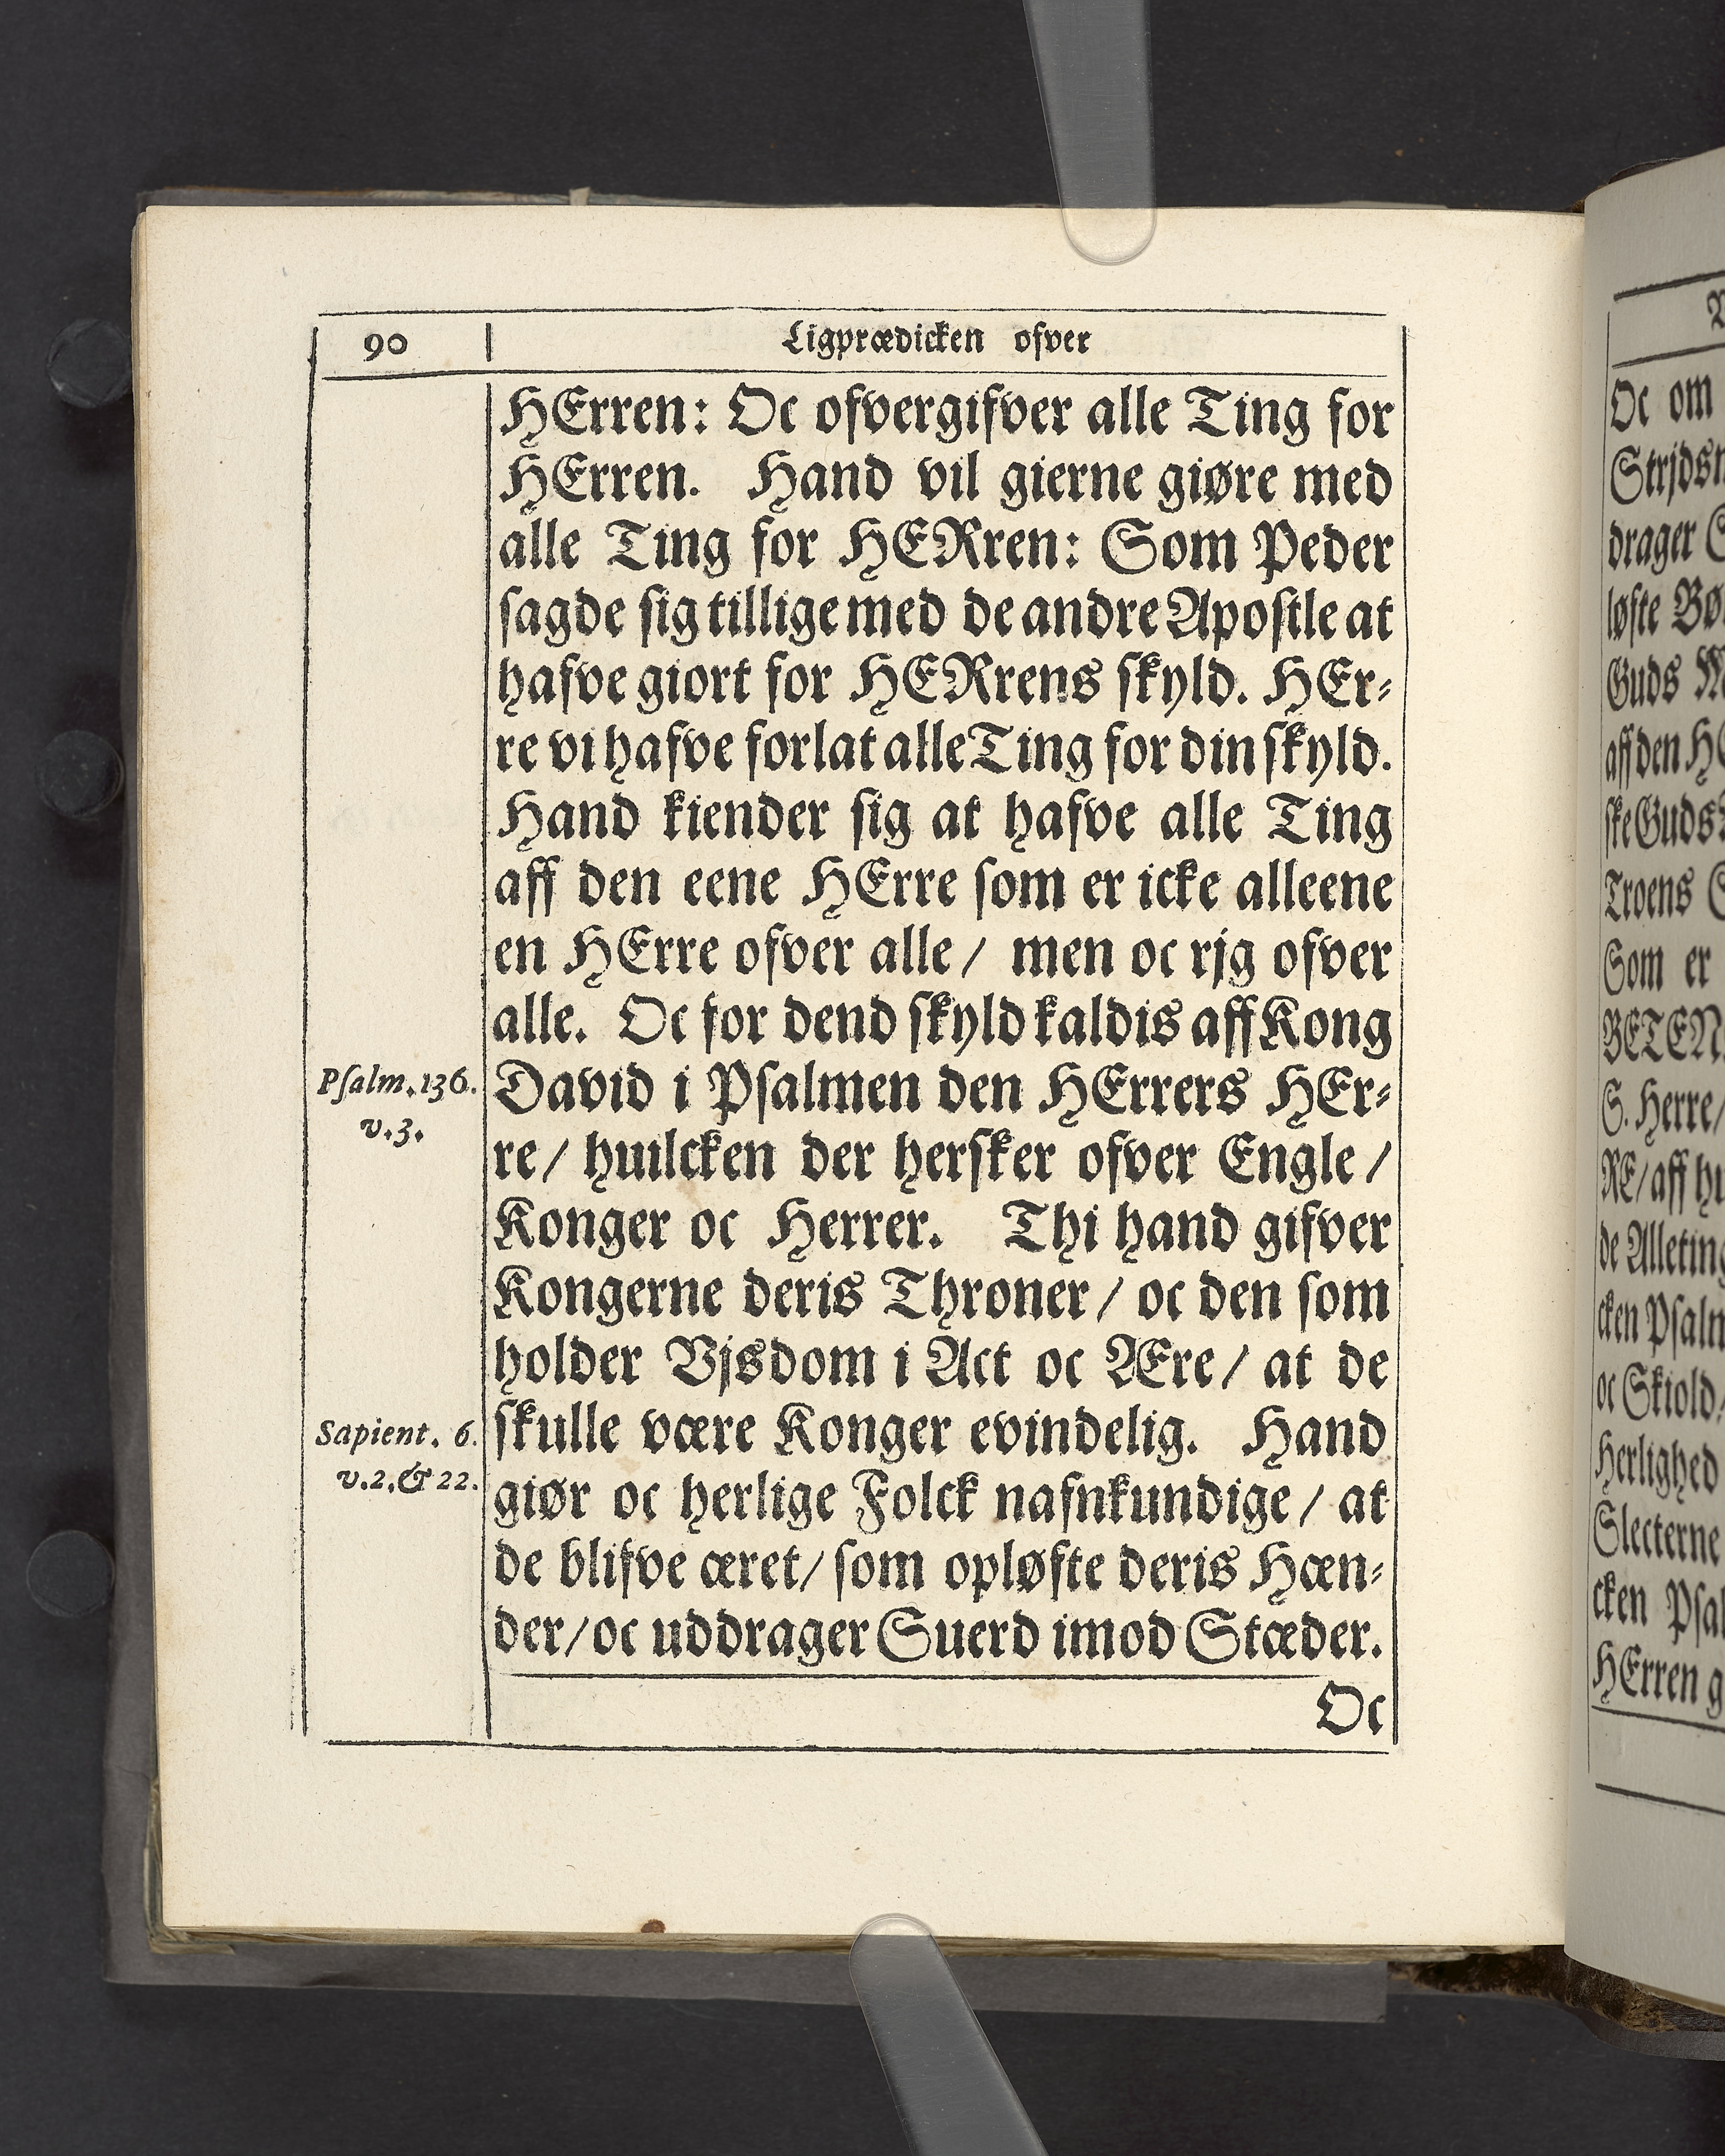 90
Ligprædicken ofver
HErren: Oc ofvergifver alle Ting for
HErren. Hand vil gierne giøre med
alle Ting for HERren: Som Peder
sagde sig tillige med de andre Apostle at
hafve giort for HERrens skyld. HEr-
re vi hafve forlat alle Ting for din skyld.
Hand kiender sig at hafve alle Ting
aff den eene HErre som er icke alleene
en HErre ofver alle / men oc rjg ofver
alle. Oc for dend skyld kaldis aff Kong
Psalm. 136.
v. 3.
David i Psalmen den HErrers HEr-
re / huilcken der hersker ofver Engle /
Konger oc Herrer. Thi hand gifver
Kongerne deris Throner / oc den som
holder Vjsdom i Act oc Ære / at de
Sapient. 6.
v. 2. & 22.
skulle være Konger evindelig. Hand
giør oc herlige Folck nafnkundige / at
de blifve æret / som opløfte deris Hæn-
der / oc uddrager Suerd imod Stæder.
Oc
Oc om
drager
løfte
Guds
aff den
ske Guds
Troens
Som er
S. Herre /
RE / aff
cken
oc Skiold
Herlighed
Slecterne
cken
HErren